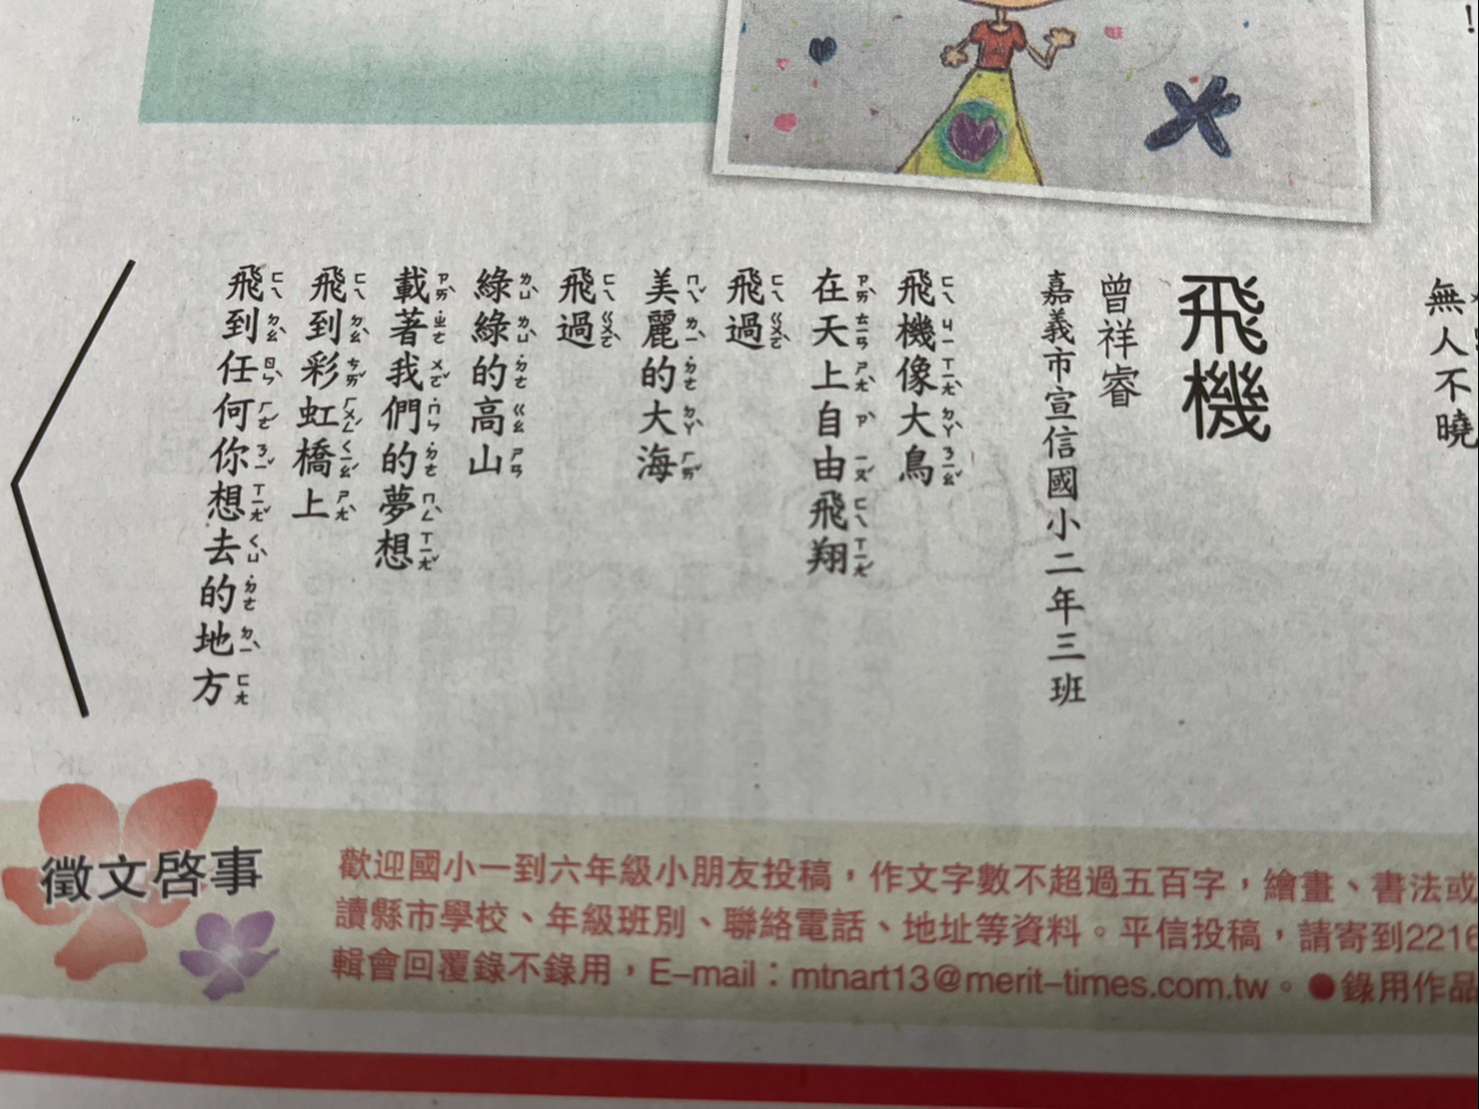 ！
無人不曉
飛機
曾祥睿
嘉義市宣信國小二年三班
飛機像大鳥
在天上自由飛翔
飛過
美麗的大海
飛過
綠綠的高山
載著我們的夢想
飛到彩虹橋上
飛到任何你想去的地方
徵文啓事
歡迎國小一到六年級小朋友投稿，作文字數不超過五百字，繪畫、書法或
讀縣市學校、年級班別、聯絡電話、地址等資料。平信投稿，請寄到2216
輯會回覆錄不錄用，E-mail：mtnart13@merit-times.com.tw。●錄用作品